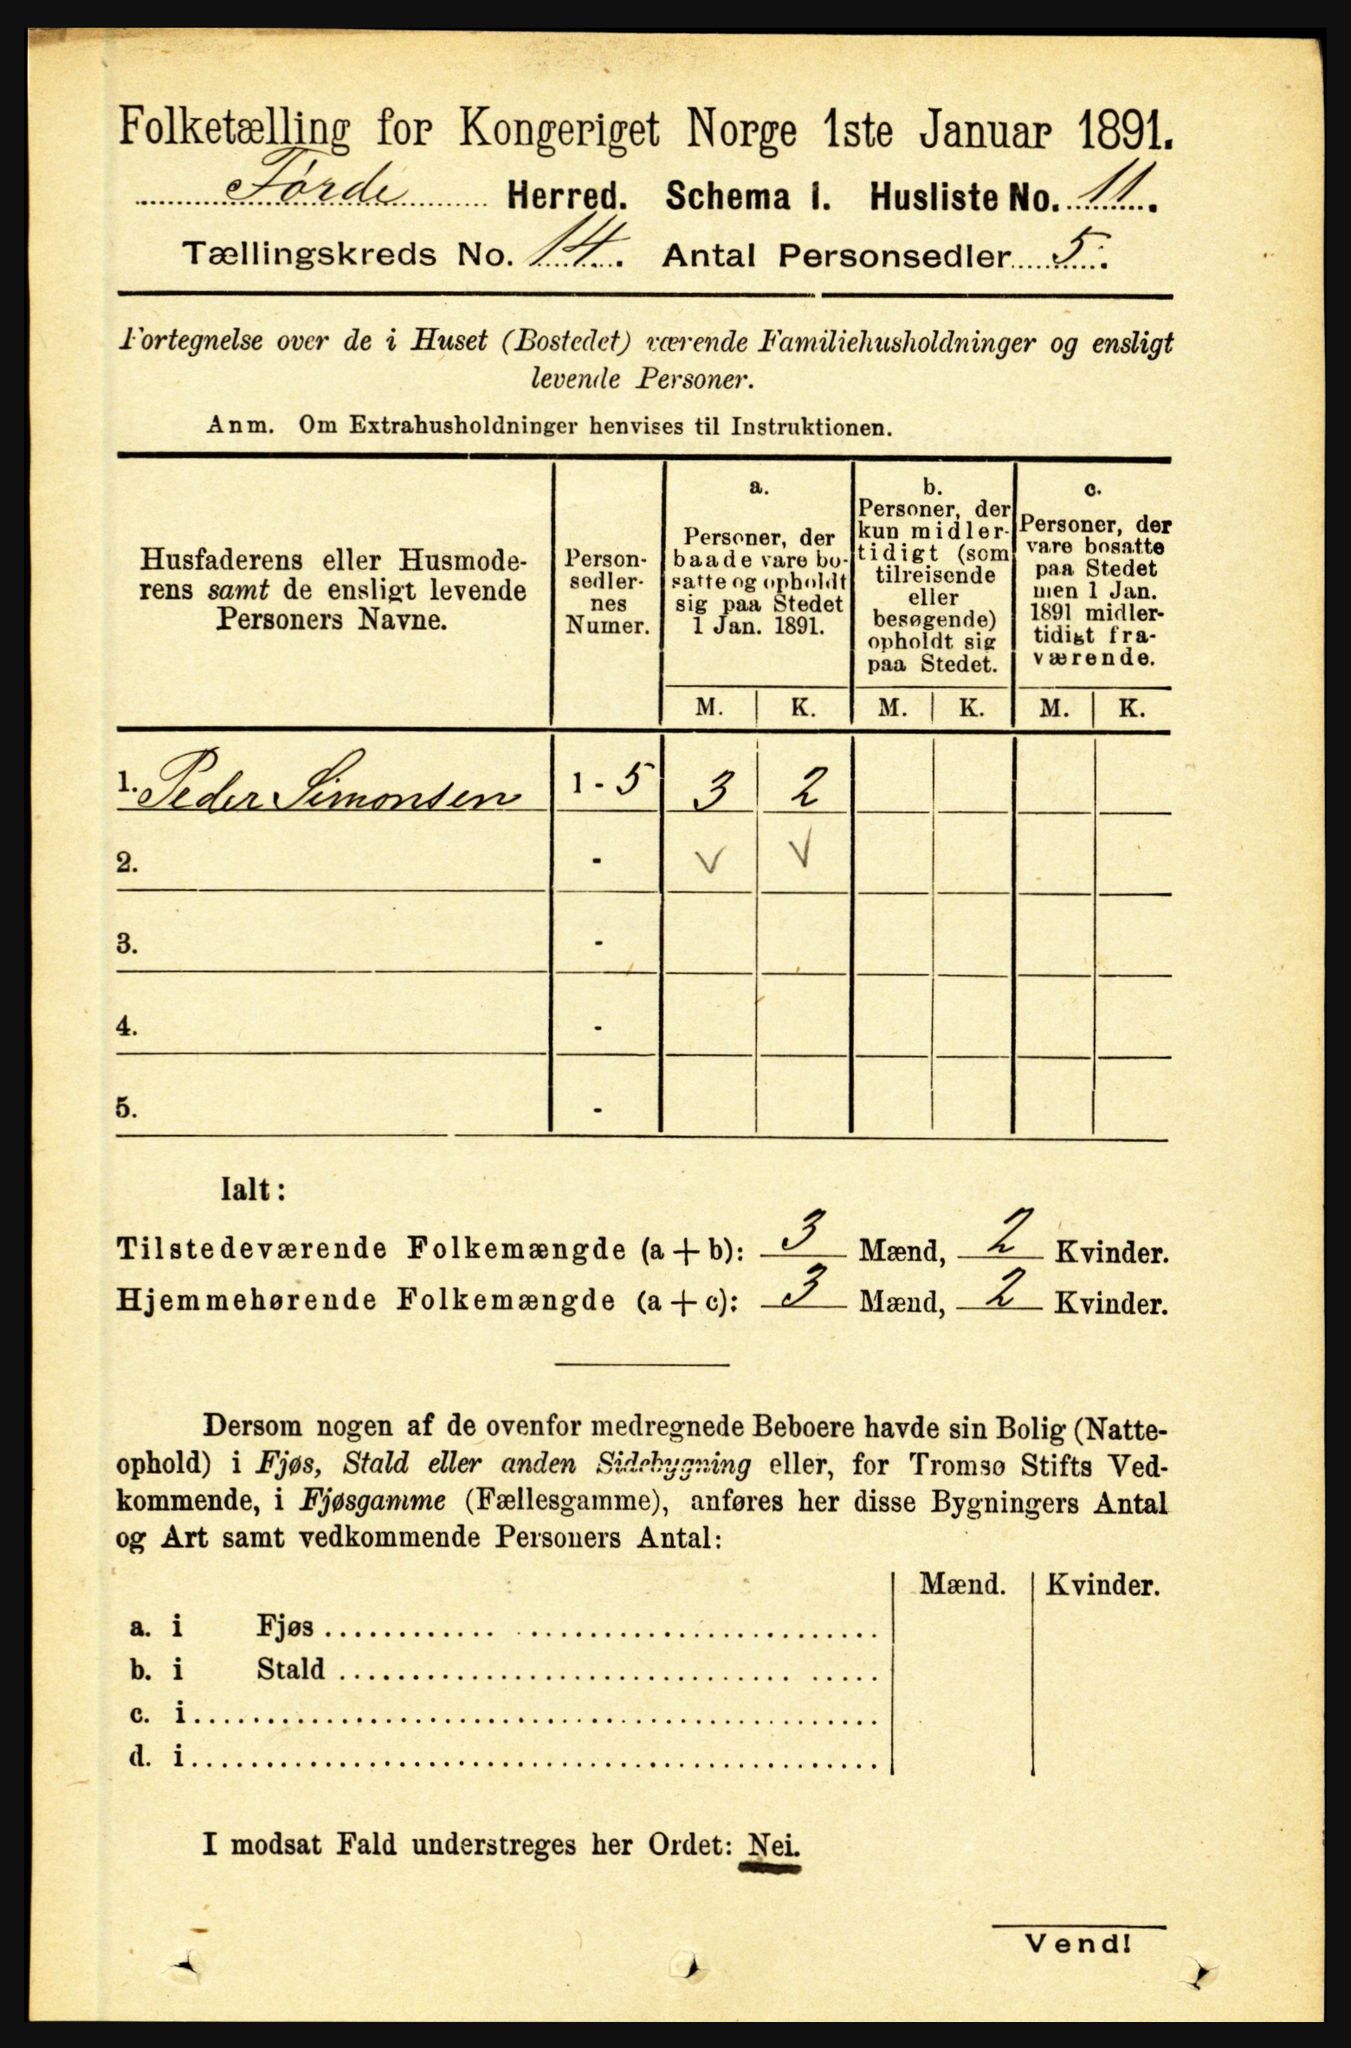 Folketælling for Kongeriget Norge 1ste Januar 1891.
Førde Herred. Schema I. Husliste No. 11.
Tællingskreds No. 14. Antal Personsedler 5.
Fortegnelse over de i Huset (Bostedet) værende Familiehusholdninger og ensligt
levende Personer.
Anm. Om Extrahusholdninger henvises til Instruktionen.
Husfaderens eller Husmode-
rens samt de ensligt levende
Personers Navne.
Person-
sedler-
nes
Numer.
a.
Personer, der
baade vare bo-
satte og opholdt
sig paa Stedet
1 Jan. 1891.
b.
Personer, der
kun midler-
tidigt (som
tilreisende
eller
besøgende)
opholdt sig
paa Stedet.
c.
Personer, der
vare bosatte
paa Stedet
men 1 Jan.
1891 midler-
tidigt fra-
værende.
M. K. M. K. M. K.
1. Peder Simonsen 1 - 5 3 2
2. - v v
3. -
4. -
5. -
Ialt:
Tilstedeværende Folkemængde (a + b): 3 Mænd, 2 Kvinder.
Hjemmehørende Folkemængde (a + c): 3 Mænd, 2 Kvinder.
Dersom nogen af de ovenfor medregnede Beboere havde sin Bolig (Natte-
ophold) i Fjøs, Stald eller anden Sidebygning eller, for Tromsø Stifts Ved-
kommende, i Fjøsgamme (Fællesgamme), anføres her disse Bygningers Antal
og Art samt vedkommende Personers Antal:
Mænd. Kvinder.
a. i Fjøs
b. i Stald
c. i
d. i
I modsat Fald understreges her Ordet: Nei.
Vend!